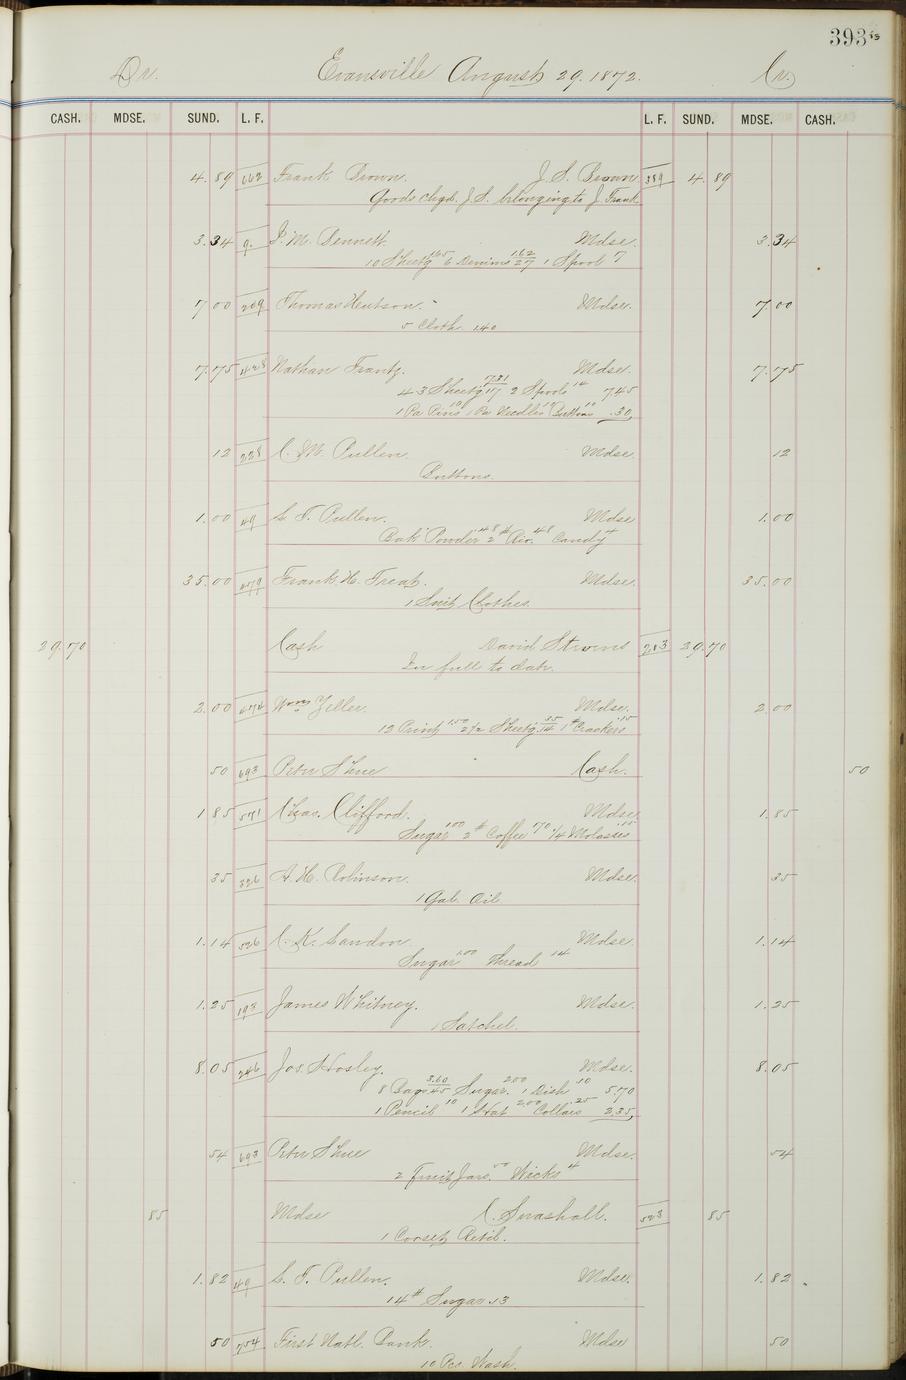 393
Dr. Evansville August 29. 1872. Cr.
CASH. MDSE. SUND. L. F. L. F. SUND. MDSE. CASH.
4.89 662 Frank Brown. J. S. Brown 389 4.89
Goods chgd. J. S. belonging to J. Frank
3.34 9. J. M. Bennett. Mdse. 3.34
10 Sheetg 1.65 6 Denims 1.62/27 1 Spool 7
7.00 209 Thomas Hutson. Mdse. 7.00
5 Cloth 1.40
7.75 428 Nathan Frantz. Mdse. 7.75
43 Sheetg 7.31/17 2 Spools 14 7.45
1 Pa Pins 10 1 Pa Needles 10 Buttons 10 .30
12 228 C. M. Pullen. Mdse. 12
Buttons.
1.00 49 L. T. Pullen. Mdse 1.00
Bak Powder 48 2# Rice 48 Candy 4
35.00 Frank H. Treat. Mdse. 35.00
1 Suit Clothes.
29.70 Cash David Stevens 203 29.70
In full to date.
2.00 Wm Zeller. Mdse. 2.00
12 Print 1.50 2 1/2 Sheetg. 35/14 1# Crackers .15
50 693 Peter Shue Cash. 50
1.85 571 Chas. Clifford. Mdse. 1.85
Sugar 1.00 2# Coffee 70 1/4 Molasses .15
35 326 A. H. Robinson. Mdse. 35
1 Gal. Oil
1.14 526 C. K. Landon. Mdse. 1.14
Sugar 1.00 Thread 14
1.25 193 James Whitney. Mdse. 1.25
1 Satchel.
8.05 246 Jos. Hosley. Mdse. 8.05
8 Bags 3.60/45 Sugar. 2.00 1 Dish 10 5.70
1 Pencil 10 1 Hat 2.00 Collars .25 2.35
54 693 Peter Shue Mdse. 54
2 Fruit Jars. 50 Wicks 4
85 Mdse C. Snashall. 523 85
1 Corset Retd.
1.82 49 L. T. Pullen. Mdse. 1.82
14# Sugar .13
50 754 First Natl. Bank. Mdse 50
10 Pcs. Wash.